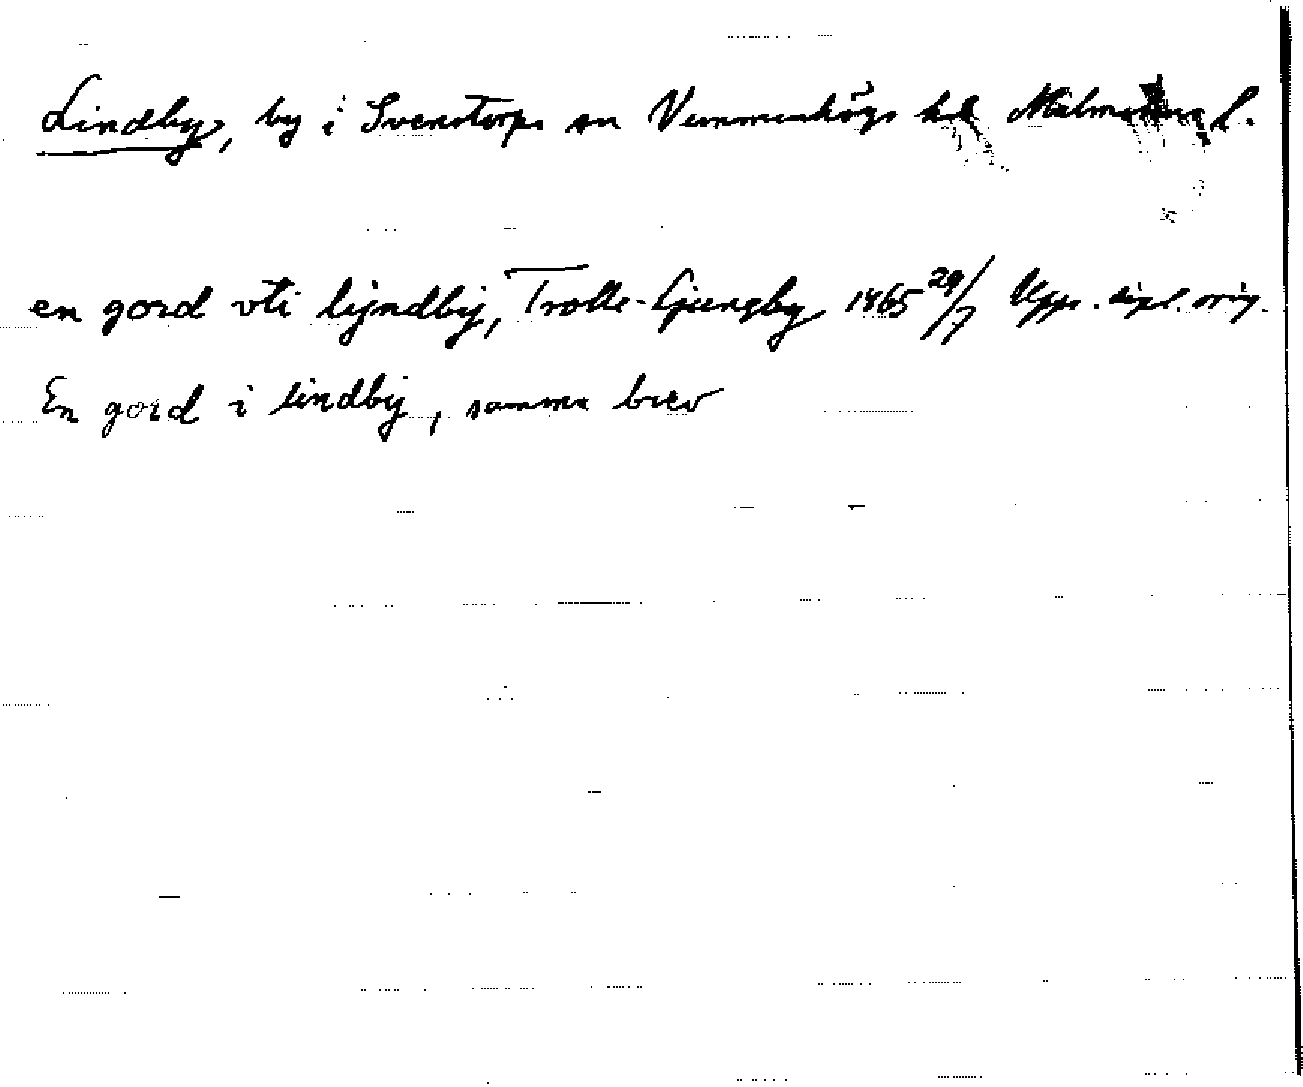 Lindby, by i Svenstorps sn Vemmenhögs hd Malmöhus l.
en gord vti lijndbij, Trolle-Ljungby 1465 29/7 Upps. dipl. orig.
En gord i lindbij, samma brev